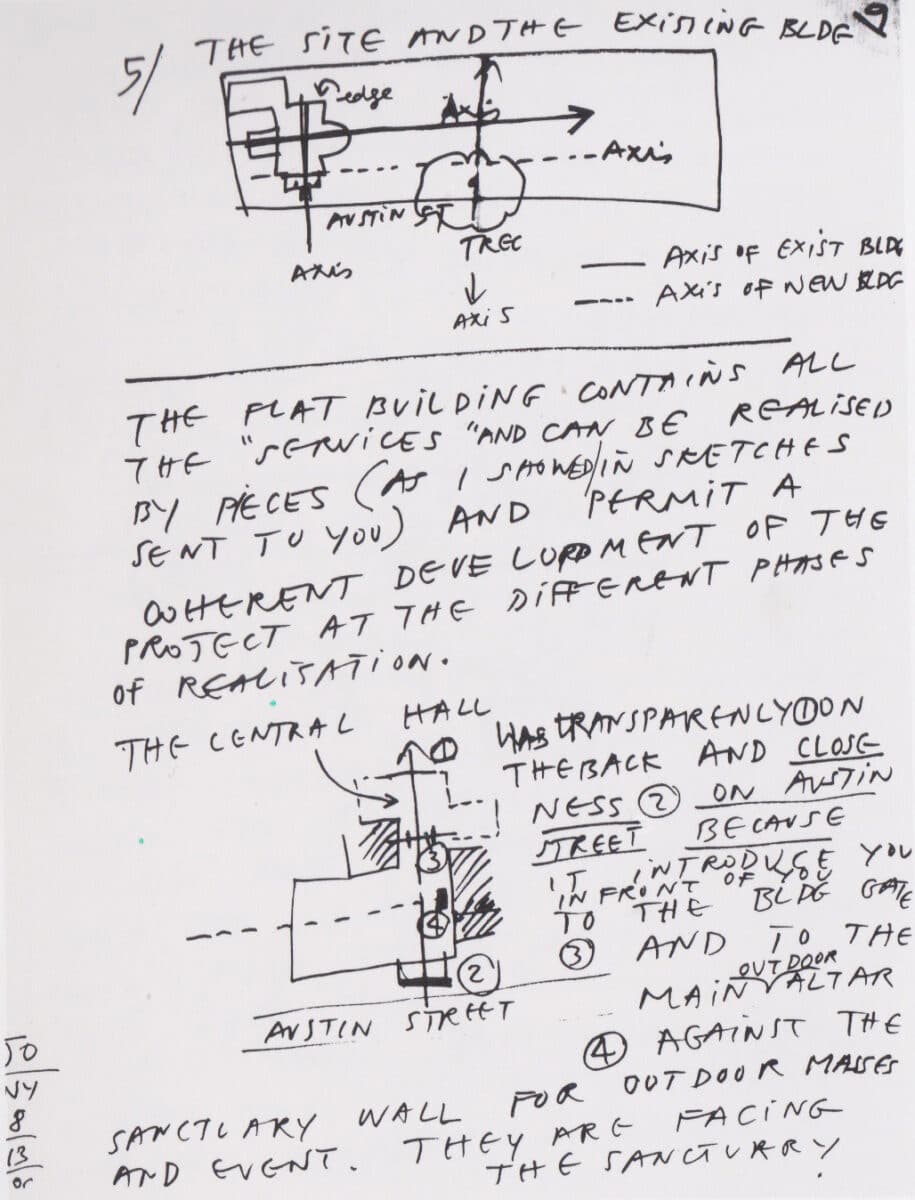 5/ THE SITE AND THE EXISTING BLDG 9
edge
Axis
Axis
AUSTIN ST
TREE
Axis
Axis
AXIS OF EXIST BLDG
AXIS OF NEW BLDG
THE FLAT BUILDING CONTAINS ALL
THE "SERVICES" AND CAN BE REALISED
BY PIECES (AS I SHOWED IN SKETCHES
SENT TO YOU) AND PERMIT A
COHERENT DEVELOPPMENT OF THE
PROJECT AT THE DIFFERENT PHASES
OF REALISATION.
THE CENTRAL HALL
HAS TRANSPARENCY ① ON
THE BACK AND CLOSE
NESS ② ON AUSTIN
STREET BECAUSE
IT INTRODUCE YOU
IN FRONT OF YOU
TO THE BLDG GATE
③ AND TO THE
OUTDOOR
MAIN ALTAR
④ AGAINST THE
①
③
④
②
AUSTIN STREET
SANCTUARY WALL FOR OUTDOOR MASSES
AND EVENT. THEY ARE FACING
THE SANCTUARY
JO
NY
8
13
01